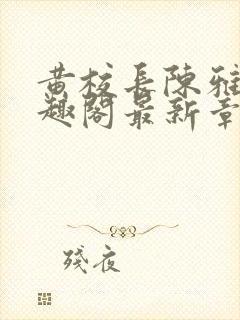 黄校长陈雅
趣阁最新章
残夜